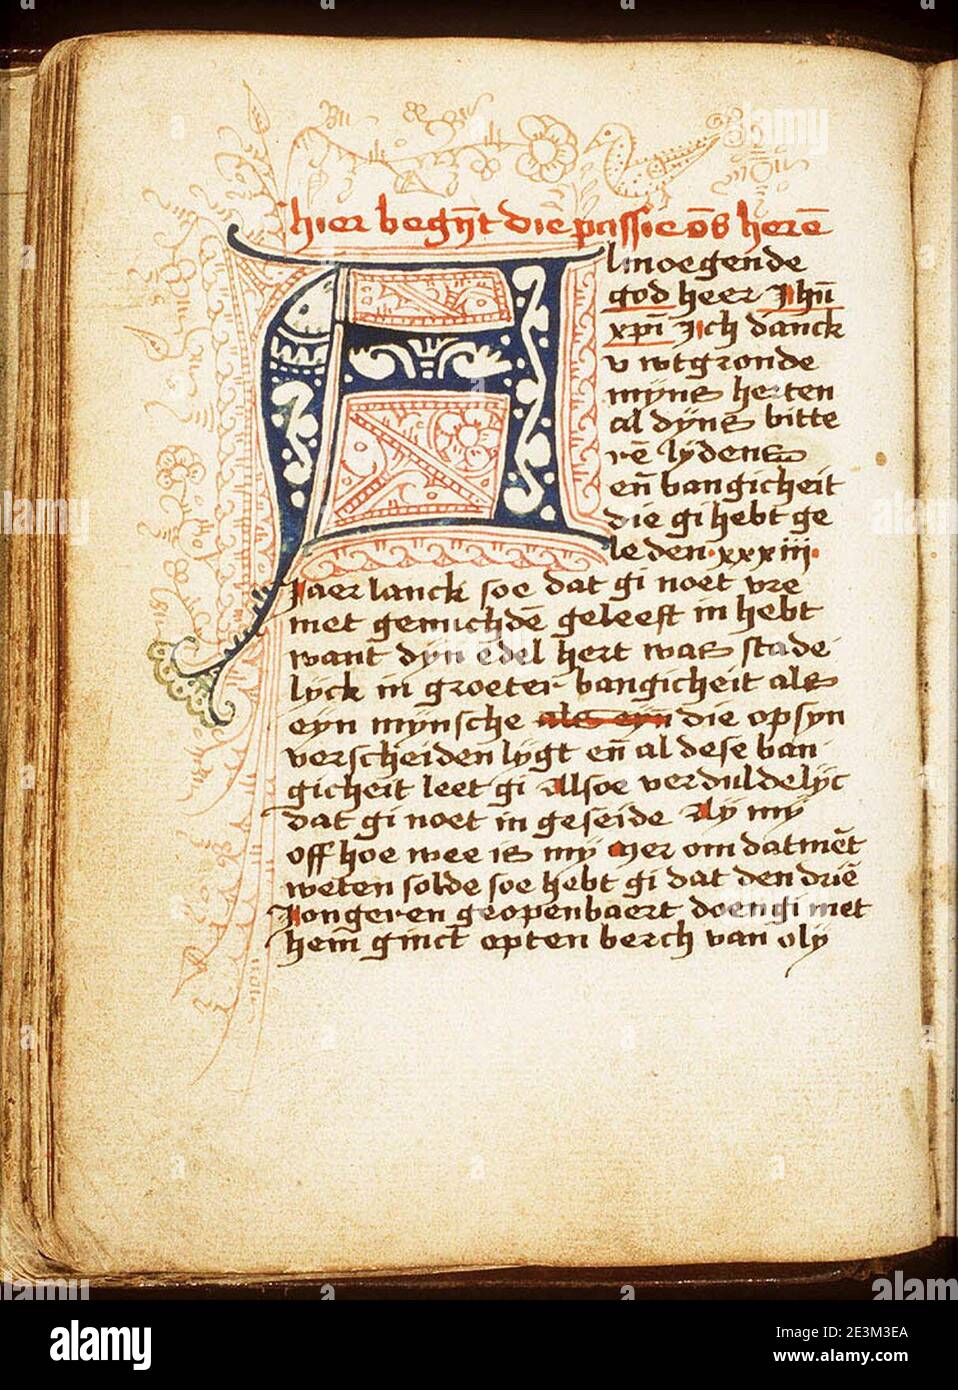 hier begīt die passie ōs herē
Almoegende
god heer Ihū
xpī Ich danck
v wtgronde
mijns herten
al dyns bitte
rē lydens
en̄ bangicheit
die gi hebt ge
leden·xxxiij·
Jaer lanck soe dat gi noet vre
met genuchdē geleeft in hebt
want dyn edel hert was stade
lyck in groeter bangicheit als
eyn mynsche als eyn die opsyn
verscheiden̄ lygt en̄ al dese ban
gicheit leet gi Alsoe verduldelyc
dat gi noet in geseide Ay my
off hoe wee is my Mer om datmēt
weten solde soe hebt gi dat den driē
Jongeren geopenbaert doen gi met
hem̄ ginct opten berch van oly
alamy
alamy
Image ID: 2E3M3EA
www.alamy.com